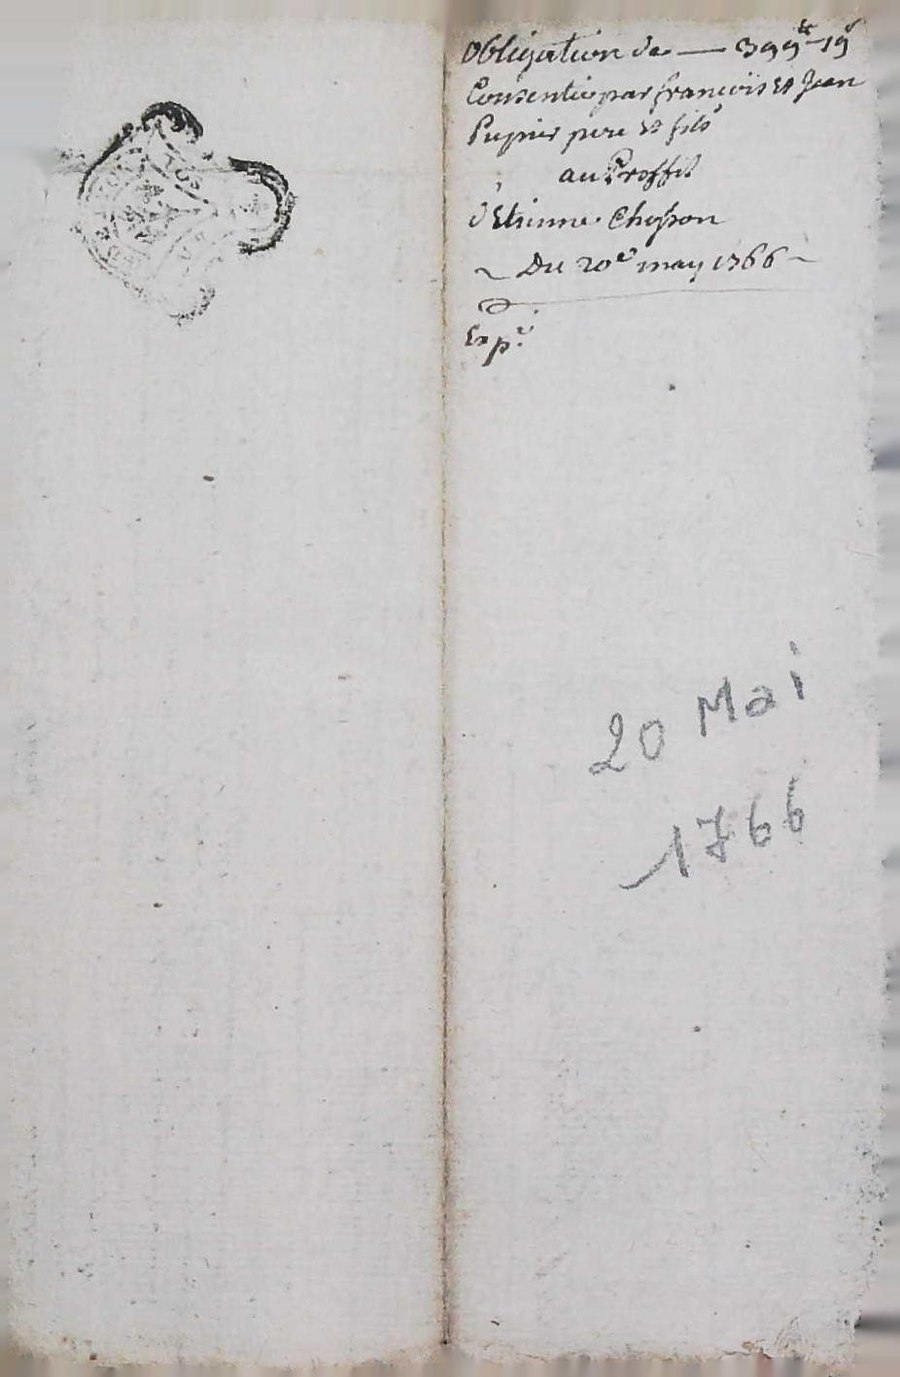 Obligation de — 399# 19s
Consentie par francois et Jean
Pupier pere et fils
au Proffit
d'Etienne Chosson
~ Du 20e may 1766 ~
Expe
20 Mai
1766